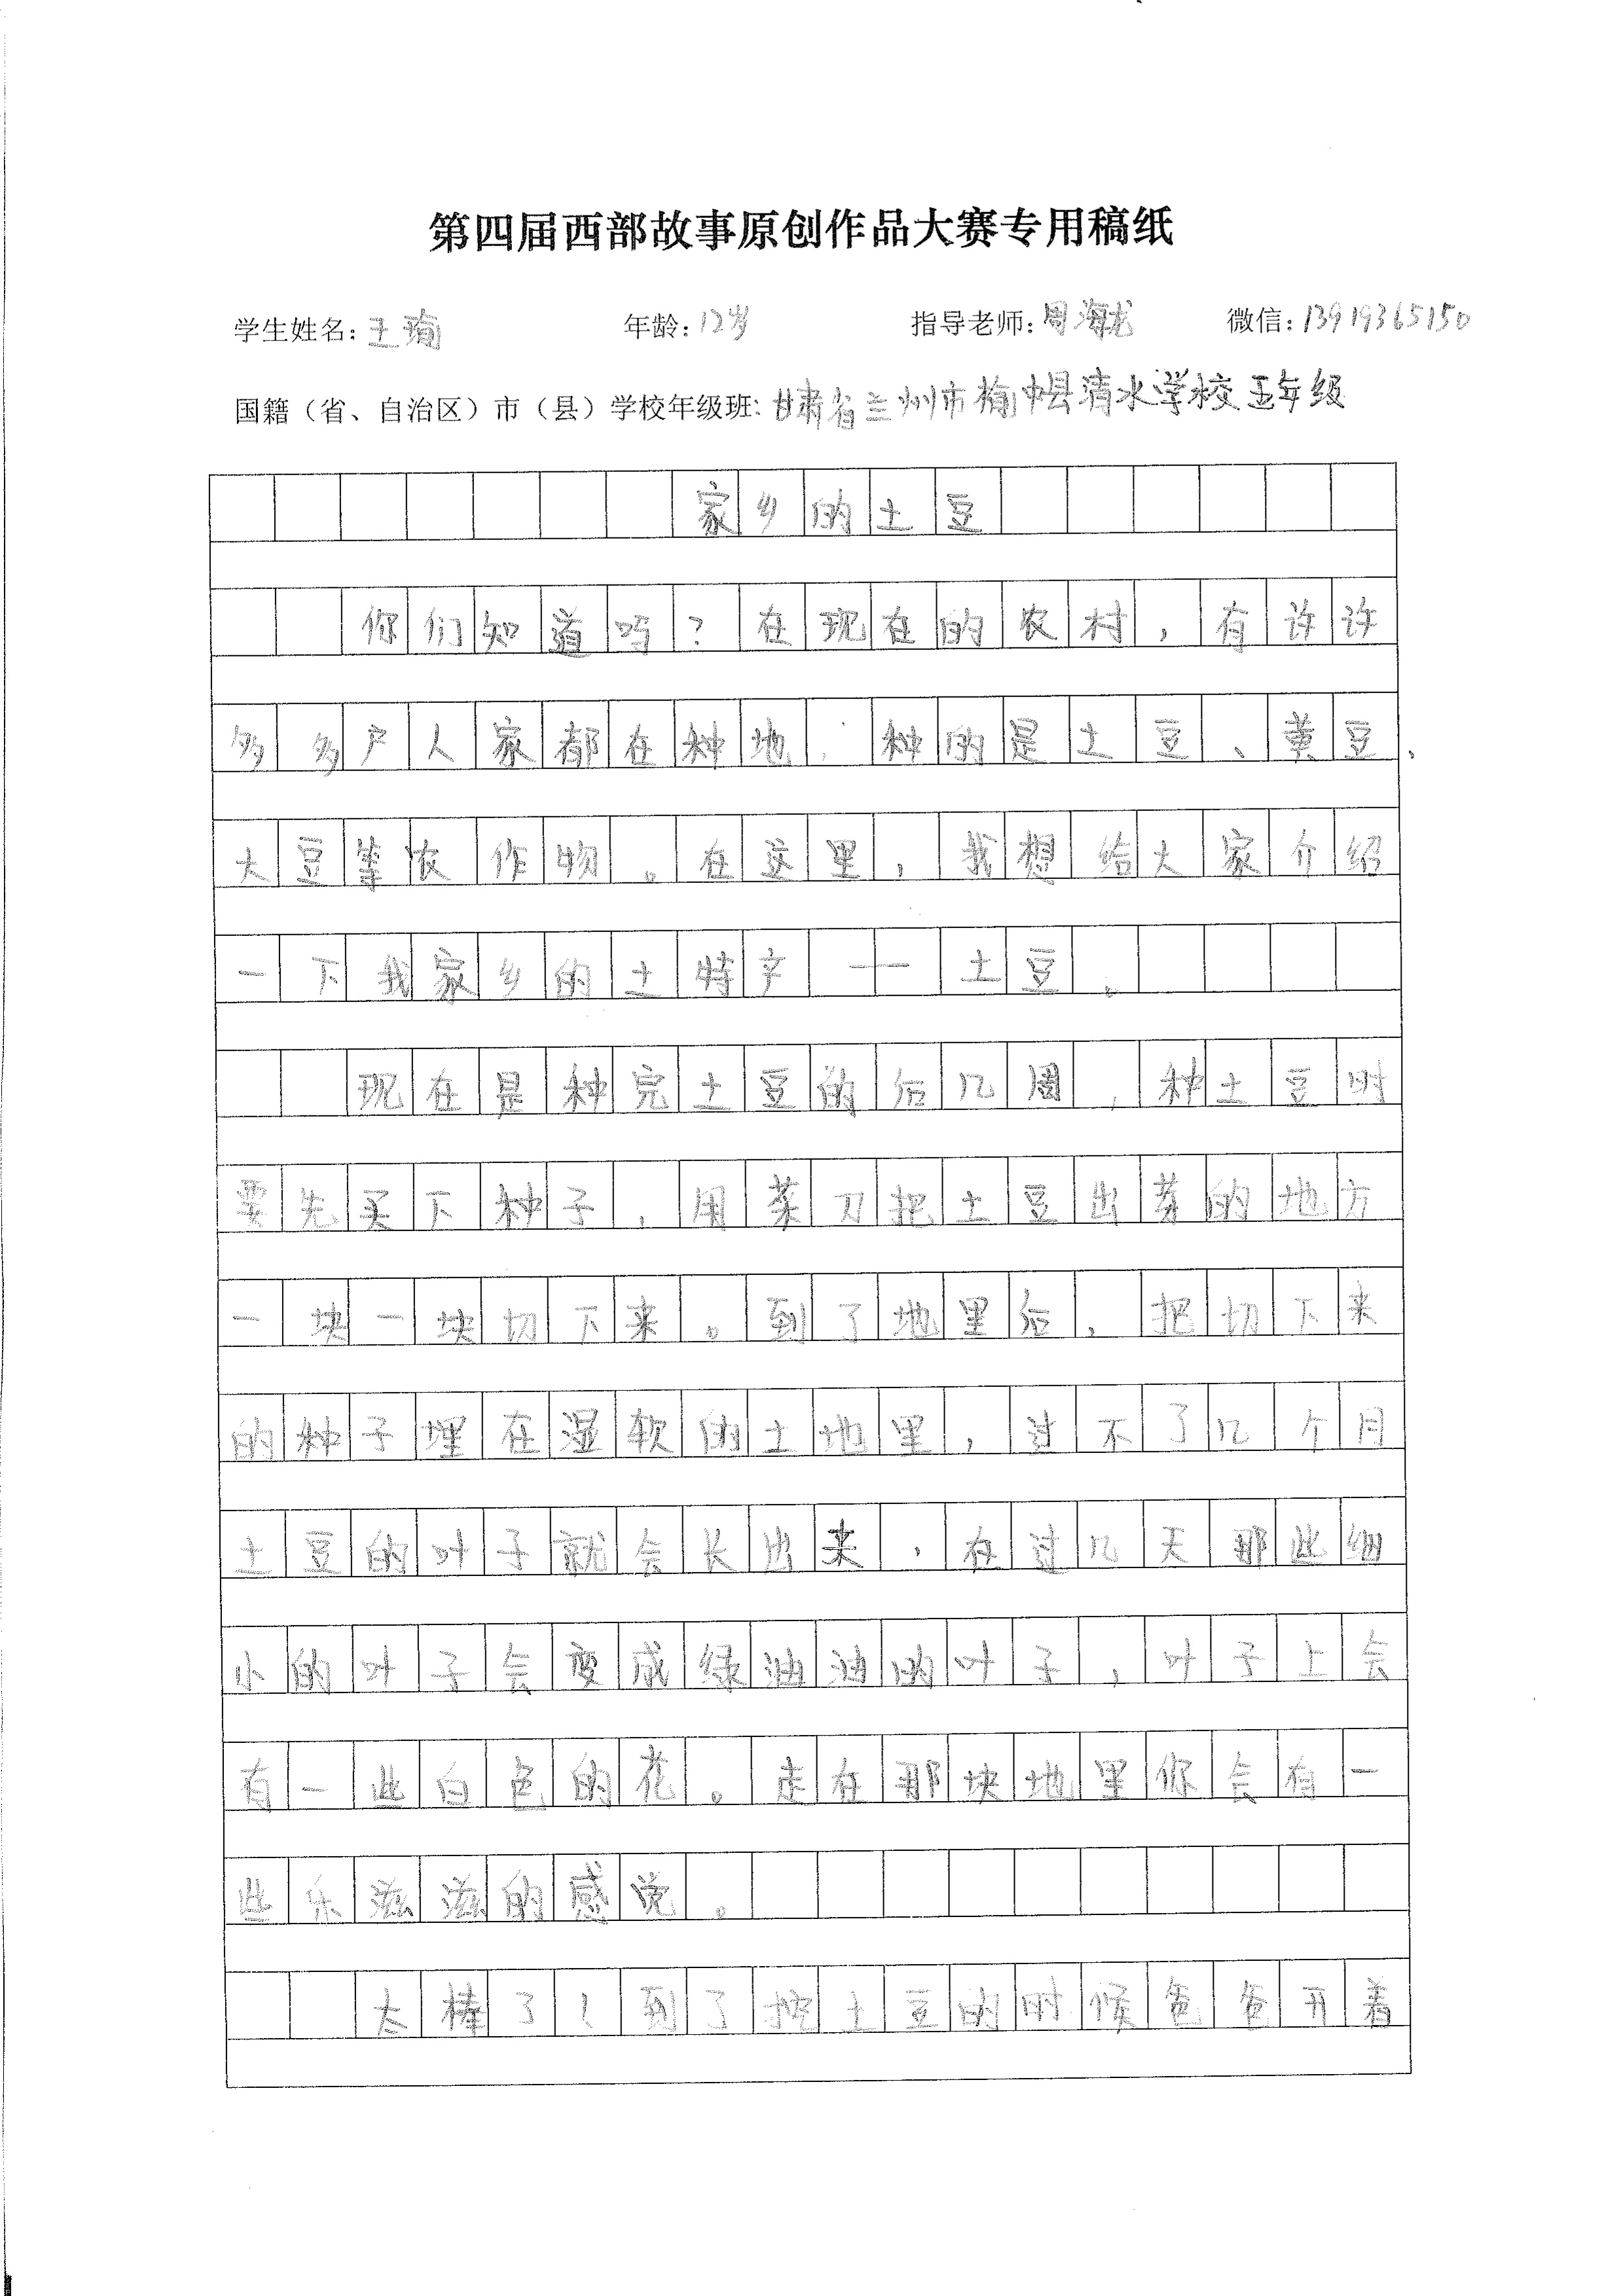 第四届西部故事原创作品大赛专用稿纸
学生姓名：王珣 年龄：12岁 指导老师：周海龙 微信：13919365150
国籍（省、自治区）市（县）学校年级班：甘肃省兰州市榆中县清水学校五年级
家乡的土豆
你们知道吗？在现在的农村，有许许
多多户人家都在种地，种的是土豆、黄豆、
大豆等农作物。在这里，我想给大家介绍
一下我家乡的土特产——土豆。
现在是种完土豆的后几周，种土豆时
要先买下种子，用菜刀把土豆出芽的地方
一块一块切下来。到了地里后，把切下来
的种子埋在湿软的土地里，过不了几个月
土豆的叶子就会长出来，在过几天那些细
小的叶子会变成绿油油的叶子，叶子上会
有一些白色的花。走在那块地里你会有一
些乐滋滋的感觉。
太棒了！到了挖土豆的时候爸爸开着